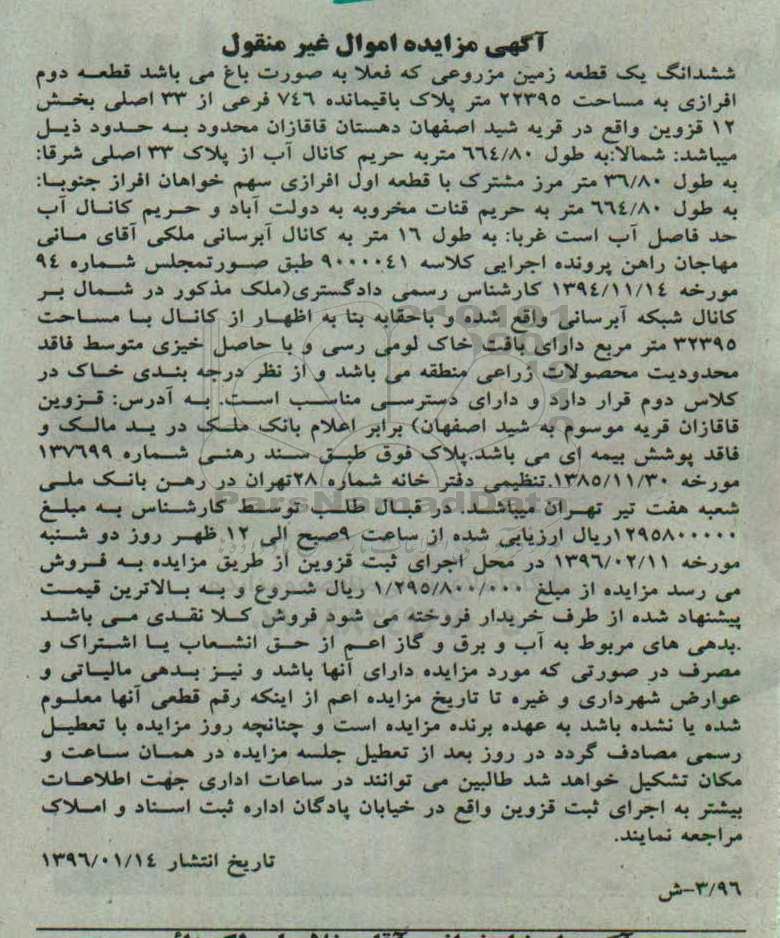 آگهی مزایده اموال غیر منقول
ششدانگ یک قطعه زمین مزروعی که فعلا به صورت باغ می باشد قطعه دوم
افرازی به مساحت ۲۲۳۹۵ متر پلاک باقیمانده ۷٤٦ فرعی از ۳۳ اصلی بخش
۱۲ قزوین واقع در قریه شید اصفهان دهستان قاقازان محدود به حدود ذیل
میباشد: شمالا:به طول ٦٦٤/۸۰ متربه حریم کانال آب از پلاک ۳۳ اصلی شرقا:
به طول ۳٦/۸۰ متر مرز مشترک با قطعه اول افرازی سهم خواهان افراز جنوبا:
به طول ٦٦٤/۸۰ متر به حریم قنات مخروبه به دولت آباد و حریم کانال آب
حد فاصل آب است غربا: به طول ۱٦ متر به کانال آبرسانی ملکی آقای مانی
مهاجان راهن پرونده اجرایی کلاسه ۹۰۰۰۰٤۱ طبق صورتمجلس شماره ۹٤
مورخه ۱۳۹٤/۱۱/۱٤ کارشناس رسمی دادگستری(ملک مذکور در شمال بر
کانال شبکه آبرسانی واقع شده و باحقابه بنا به اظهار از کانال با مساحت
۳۲۳۹۵ متر مربع دارای بافت خاک لومی رسی و با حاصل خیزی متوسط فاقد
محدودیت محصولات زراعی منطقه می باشد و از نظر درجه بندی خاک در
کلاس دوم قرار دارد و دارای دسترسی مناسب است. به آدرس: قزوین
قاقازان قریه موسوم به شید اصفهان) برابر اعلام بانک ملک در ید مالک و
فاقد پوشش بیمه ای می باشد.پلاک فوق طبق سند رهنی شماره ۱۳۷٦۹۹
مورخه ۱۳۸۵/۱۱/۳۰.تنظیمی دفتر خانه شماره ۲۸تهران در رهن بانک ملی
شعبه هفت تیر تهران میباشد. در قبال طلب توسط کارشناس به مبلغ
۱۲۹۵۸۰۰۰۰۰ریال ارزیابی شده از ساعت ۹صبح الی ۱۲ ظهر روز دو شنبه
مورخه ۱۳۹٦/۰۲/۱۱ در محل اجرای ثبت قزوین از طریق مزایده به فروش
می رسد مزایده از مبلغ ۱/۲۹۵/۸۰۰/۰۰۰ ریال شروع و به بالاترین قیمت
پیشنهاد شده از طرف خریدار فروخته می شود فروش کلا نقدی می باشد
.بدهی های مربوط به آب و برق و گاز اعم از حق انشعاب یا اشتراک و
مصرف در صورتی که مورد مزایده دارای آنها باشد و نیز بدهی مالیاتی و
عوارض شهرداری و غیره تا تاریخ مزایده اعم از اینکه رقم قطعی آنها معلوم
شده یا نشده باشد به عهده برنده مزایده است و چنانچه روز مزایده با تعطیل
رسمی مصادف گردد در روز بعد از تعطیل جلسه مزایده در همان ساعت و
مکان تشکیل خواهد شد طالبین می توانند در ساعات اداری جهت اطلاعات
بیشتر به اجرای ثبت قزوین واقع در خیابان پادگان اداره ثبت اسناد و املاک
مراجعه نمایند.
تاریخ انتشار ۱۳۹٦/۰۱/۱٤
۳/۹٦-ش
ParsNamadData